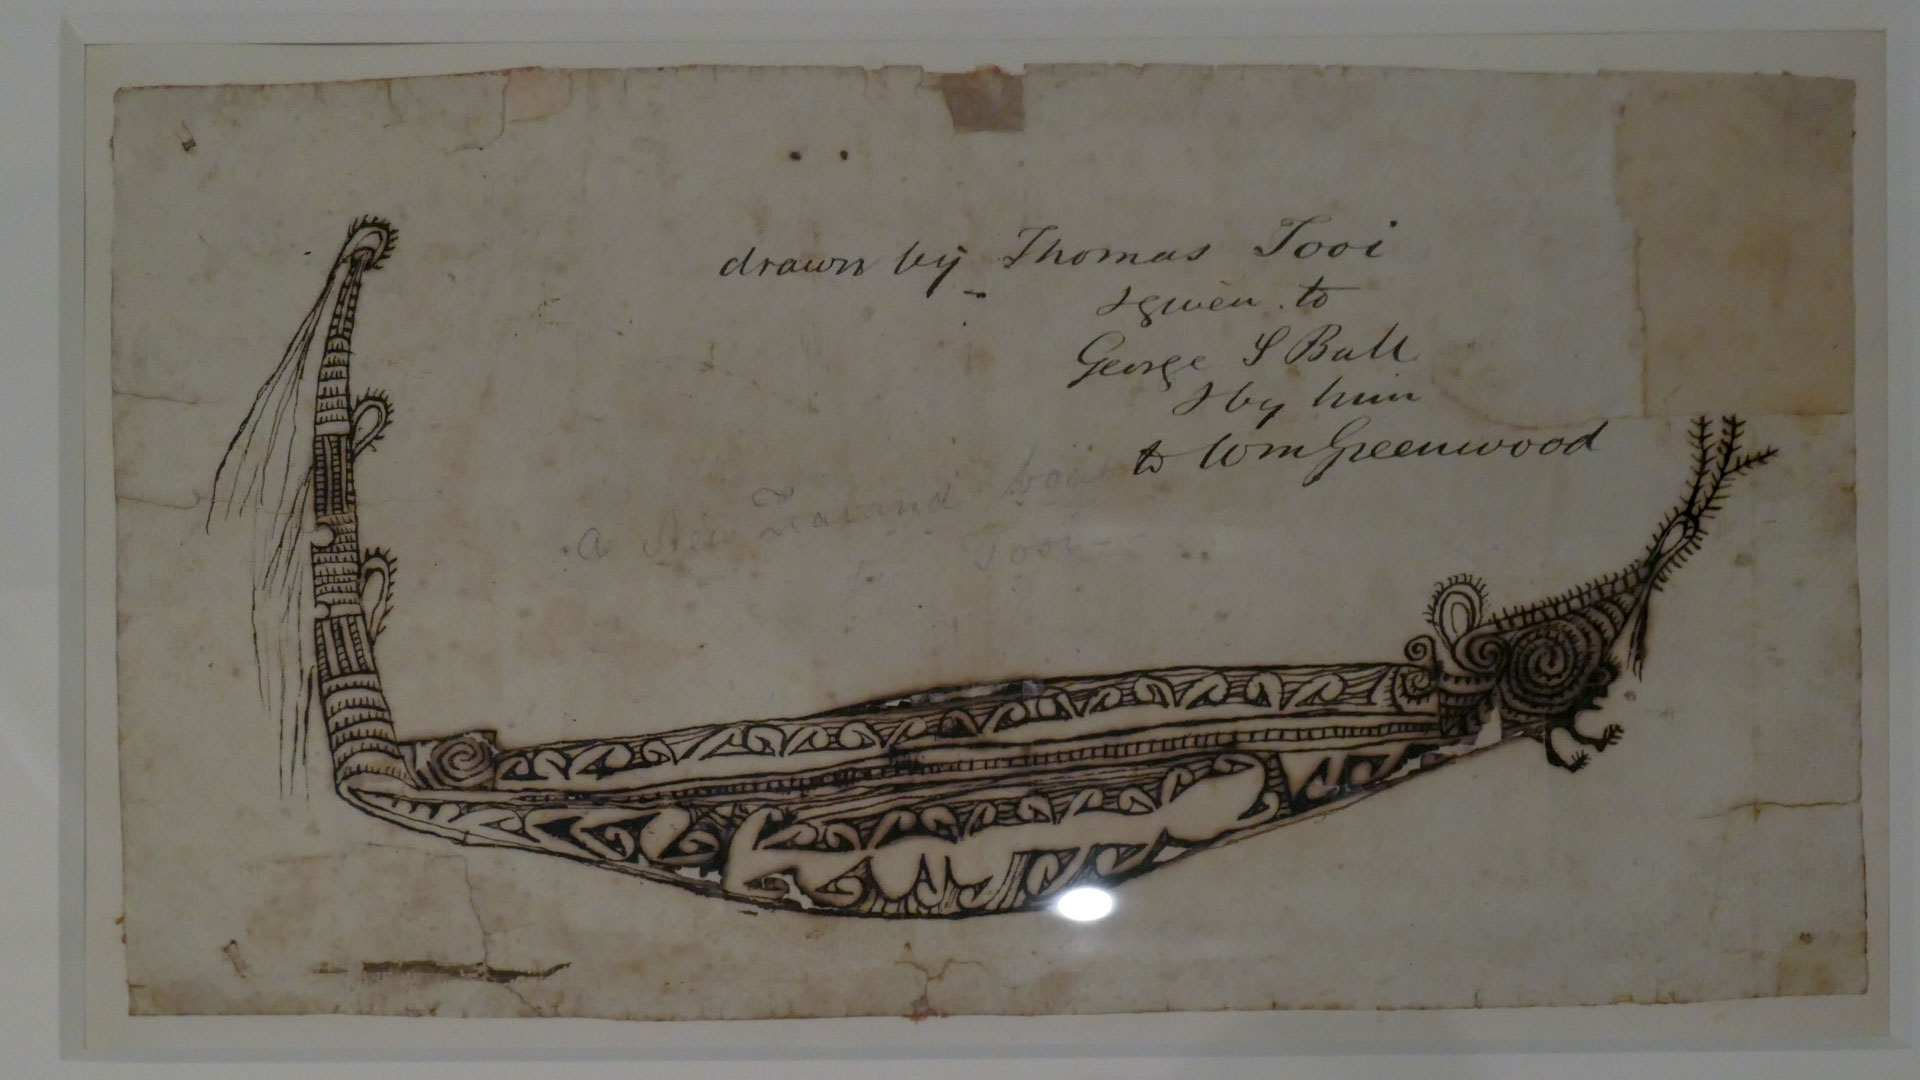 drawn by Thomas Tooi
& given to
George S Bull
& by him
to Wm Greenwood
a New Zealand boat
by Tooi